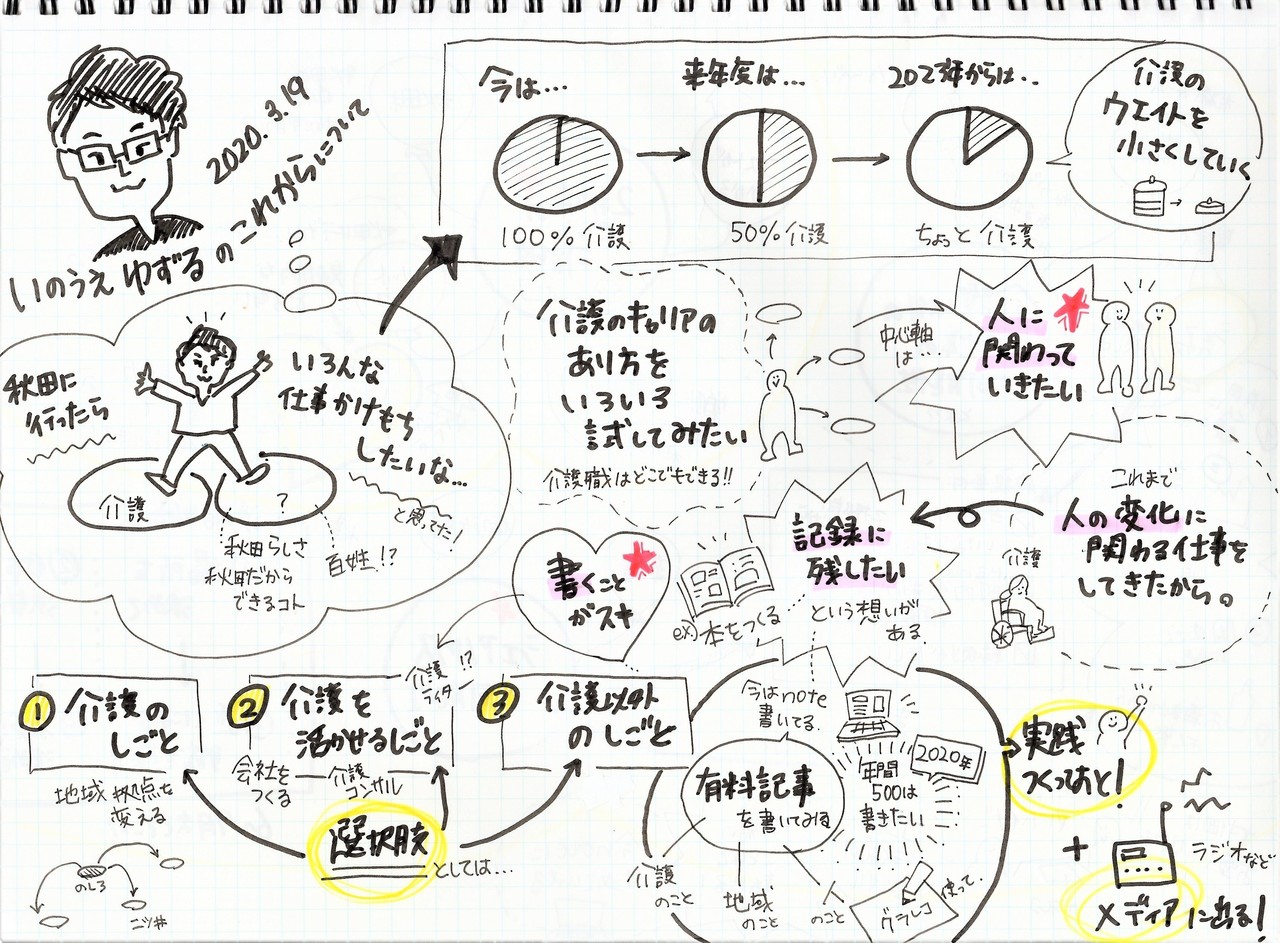 2020.3.19
いのうえ ゆずる のこれからについて
今は…
来年度は…
2023年からは…
100% 介護
50% 介護
ちょっと 介護
介護の
ウエイトを
小さくしていく
秋田に
行ったら
いろんな
仕事かけもち
したいな…
と思ってた!
介護
?
秋田らしさ
秋田だから
できるコト
百姓!?
介護のキャリアの
あり方を
いろいろ
試してみたい
介護職はどこでもできる!!
中心軸
は…
人に
関わって
いきたい
これまで
人の変化に
関わる仕事を
してきたから。
介護
記録に
残したい
という想いが
ある
ex)本をつくる
書くこと
がスキ
介護
ライター!?
1 介護の
しごと
地域 拠点を
変える
のしろ
二ツ井
2 介護を
活かせるしごと
会社を
つくる
介護
コンサル
3 介護以外
のしごと
選択肢
としては…
今はnote
書いてる
2020年
年間
500は
書きたい
有料記事
を書いてみる
介護
のこと
地域
のこと
人
のこと
グラレコ
使って
実践
つくっておと!
+
ラジオなど
メディアに出る!